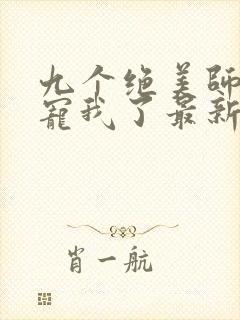 九个绝美师
宠我了最新
肖一航